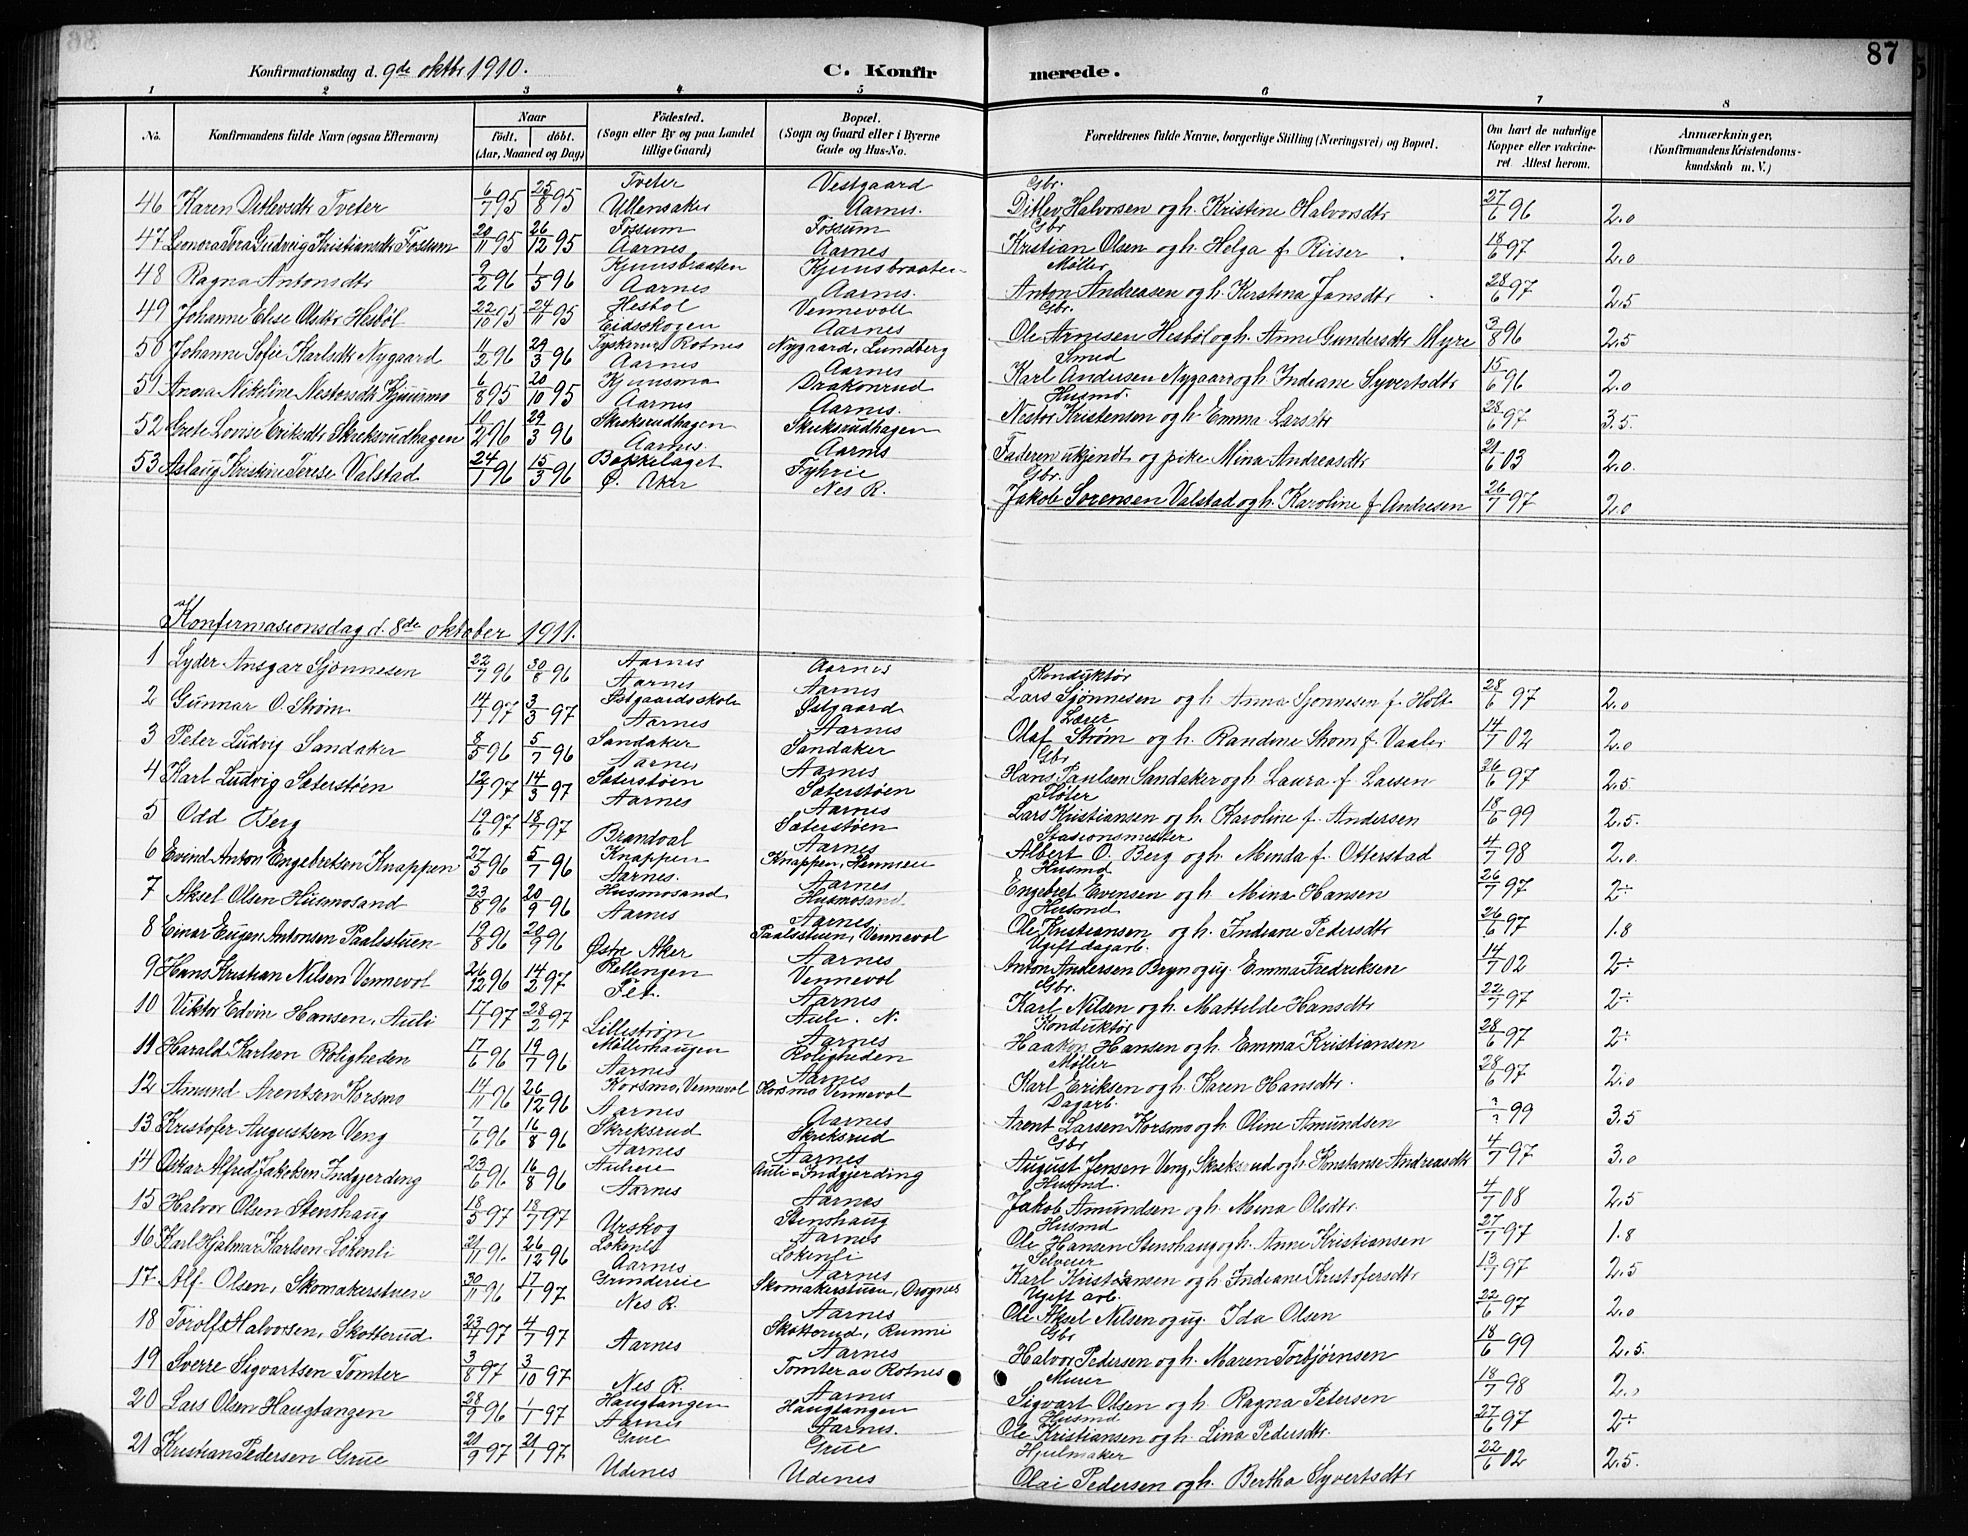 Konfirmationsdag d. 9de oktbr 1910. C. Konfirmerede. 87
1 2 3 4 5 6 7 8
No. Konfirmandens fulde Navn (ogsaa Efternavn) Naar født. døbt. (Aar, Maaned og Dag) Födested. (Sogn eller By og paa Landet tillige Gaard) Bopæl. (Sogn og Gaard eller i Byerne Gade og Hus-No. Forældrenes fulde Navne, borgerlige Stilling (Næringsvei) og Bopæl. Om havt de naturlige Kopper eller vakcineret Attest herom. Anmærkninger, (Konfirmandens Kristendomskundskab m. V.)
46 Karen Ditlevsdtr Tveter 6/7 95 25/8 95 Tveter Ullensaker Vestgaard Aarnes. Gbr. Ditlev Halvorsen og h. Kristine Halvorsdtr 27/6 96 2.0
47 Leonora Tora Ludveig Kristiansdtr Fossum 20/11 95 26/12 95 Fossum Aarnes Fossum Aarnes Gbr Kristian Olsen og h. Helga f. Riiser 18/6 97 2.0
48 Ragna Antonsdtr 9/2 96 1/5 96 Kjuusbraaten Aarnes Kjuusbraaten Aarnes. Møller Anton Andreasen og h. Kerstina Jansdtr 28/6 97 2.5
49 Johanne Elise Olsdtr Hesbøl 22/10 95 24/11 95 Hesbøl Eidsskogen Vennevoll Aarnes Gbr. Ole Arnesen Hesbøl og h. Anne Gundersdtr Myre 3/8 96 2.5
50 Johanne Sofie Karlsdtr Nygaard 11/2 96 29/3 96 Tyskerud, Rotnes Aarnes Nygaard, Lundberg Aarnes Smed Karl Andersen Nygaard og h. Indiane Syvertsdtr 15/6 96 2.0
51 Anora Nikoline Nestorsdtr Kjuusmo 6/8 95 20/10 95 Kjuusmo Aarnes Drakonrud Aarnes. Husmd. Nestor Kristensen og h. Emma Larsdtr 28/6 97 3.5
52 Grete Lovise Eriksdtr Skreksrudhagen 10/2 96 29/3 96 Skreksrudhagen Aarnes. Skreksrudhagen Aarnes Faderen ukjendt og pike Mina Andreasdtr 21/6 03 2.0
53 Aslaug Kristine Terese Valstad 24/1 96 15/3 96 Bakkelaget Ø. Aker Fyhrie Nes R. Gbr. Jakob Sorensen Valstad og h. Karoline f Andresen 26/7 97 2.0
Konfirmasionsdag d. 8de oktober 1911.
1 Lyder Ansgar Sjonnesen 22/7 96 30/8 96 Aarnes Aarnes Aarnes Aarnes Konduktør Lars Sjønnesen og h. Anna Sjonnesen f. Holt 28/6 97 2.0
2 Gunnar O. Strøm 14/1 97 3/3 97 Østgaardsskole Aarnes Østgaard Aarnes Lærer Olaf Strøm og h. Randine Strøm f. Vaaler 14/7 02 2.0
3 Peter Ludvig Sandaker 8/5 96 5/7 96 Sandaker Aarnes Sandaker Aarnes Gbr Hans Paulsen Sandaker og h. Laura f. Larsen 26/6 97 2.5
4 Karl Ludvig Sæterstøen 12/1 97 14/3 97 Sæterstøen Aarnes Sæterstøen Aarnes Fløter Lars Kristiansen og h. Karoline f. Andersen 18/6 99 2.5.
5 Odd Berg 19/6 97 18/7 97 Brandval Sæterstøen Aarnes Stasionsmester Albert O. Berg og h. Minda f. Otterstad 4/7 98 2.0
6 Evind Anton Engebretsen Knappen 27/5 96 5/7 96 Knappen Aarnes. Knappen, Henmoen Aarnes Husmd Engebret Evensen og h. Mina Hansen 26/7 97 2÷
7 Aksel Olsen Husmosand 23/8 96 20/9 96 Husmosand Aarnes Husmosand. Aarnes Husmd Ole Kristiansen og h. Indiane Pedersdtr 26/6 97 1.8
8 Einar Eugen Antonsen Paalsstuen 19/8 96 20/9 96 Østre Aker Paalsstuen, Vennevol Aarnes Ugift dagarb. Anton Andersen Bryn og ug. Emma Fredriksen 14/7 02 2÷
9 Hans Kristian Nilsen Vennevol 26/12 96 14/2 97 Rellingen Fet. Vennevol Aarnes Gbr. Karl Nilsen og h. Mattilde Hansdtr 22/7 97 2÷
10 Viktor Edvin Hansen, Auli 17/1 97 28/2 97 Lillestrøm Auli. N. Aarnes Konduktør Haakon Hansen og h. Emma Kristiansen 28/6 97 2÷
11 Harald Karlsen Roligheden 17/6 96 19/7 96 Møllerhaugen Aarnes Roligheden Aarnes Møller Karl Eriksen og h. Karen Hansdtr. 28/6 97 2.0
12 Amund Arentsen Korsmo 14/11 96 26/12 96 Korsmo, Vennevol Aarnes Korsmo Vennevol Aarnes Dagarb. Arent Larsen Korsmo og h. Oline Amundsen ?/? 99 3.5
13 Kristofer Augustsen Veng 7/6 96 16/8 96 Skreksrud Aarnes Skreksrud Aarnes Gbr August Jensen Veng, Skreksrud og h. Konstanse Andreasdtr 4/7 97 3.0
14 Oskar Alfred Jakobsen Indgjerding 23/6 96 16/8 96 Auleie Aarnes Auli-Indgjerding Aarnes Husmd. Jakob Amundsen og h. Mina Olsdtr. 4/7 08 2.5
15 Halvor Olsen Stenshaug 18/5 97 18/7 97 Urskog Stenshaug Aarnes Husmd Ole Hansen Stenshaug og h. Anne Kristiansen 27/7 97 1.8
16 Karl Hjalmar Karlsen Løkenli 21/11 96 26/12 96 Løkenli Aarnes Løkenli Aarnes Selveier Karl Kristiansen og h. Indiane Kristofersdtr 13/7 97 2.5
17 Alf Olsen, Skomakerstuen 30/11 96 17/1 97 Grindereie Nes R. Skomakerstuen, Drognes Aarnes Ugift arb. Ole Aksel Nilsen og ug. Ida Olsen 22/6 97 2.0
18 Torolf Halvorsen, Skotterud 23/4 97 4/7 97 Aarnes Skotterud, Runni Aarnes Gbr Halvor Pedersen og h. Maren Torbjørnsen 18/6 99 2.5.
19 Sverre Sigvartsen Tomter 3/8 97 3/10 97 Nes R. Tomter av Rotnes Aarnes Murer Sigvart Olsen og h. Ragna Petersen 18/7 98 2.0
20 Lars Olsen Haugtangen 28/9 96 1/1 97 Haugtangen Aarnes Haugtangen Aarnes. Husmd Ole Kristiansen og h. Lina Pedersdtr. 27/6 97 2÷
21 Kristian Pedersen Grue 21/9 97 21/1 97 Grue Udenes Grue Udenes Hjulmaker Olai Pedersen og h. Bertha Syvertsdtr 22/6 02 2.5.